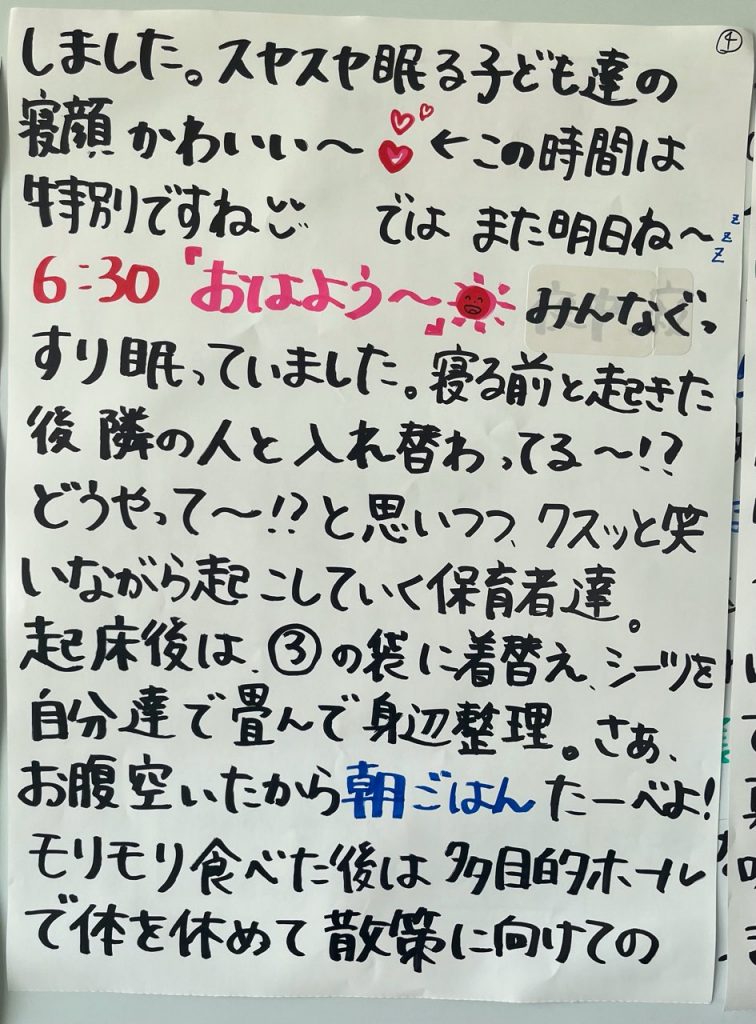 ④
しました。スヤスヤ眠る子ども達の
寝顔かわいい〜 ←この時間は
特別ですね では また明日ね〜 zzz
6:30 『おはよう〜』 みんなぐっ
すり眠っていました。寝る前と起きた
後 隣の人と入れ替わってる〜!?
どうやって〜!?と思いつつ、クスッと笑
いながら起こしていく保育者達。
起床後は、③の袋に着替え、シーツを
自分達で畳んで身辺整理。さあ、
お腹空いたから朝ごはんたーべよ!
モリモリ食べた後は多目的ホール
で体を休めて散策に向けての